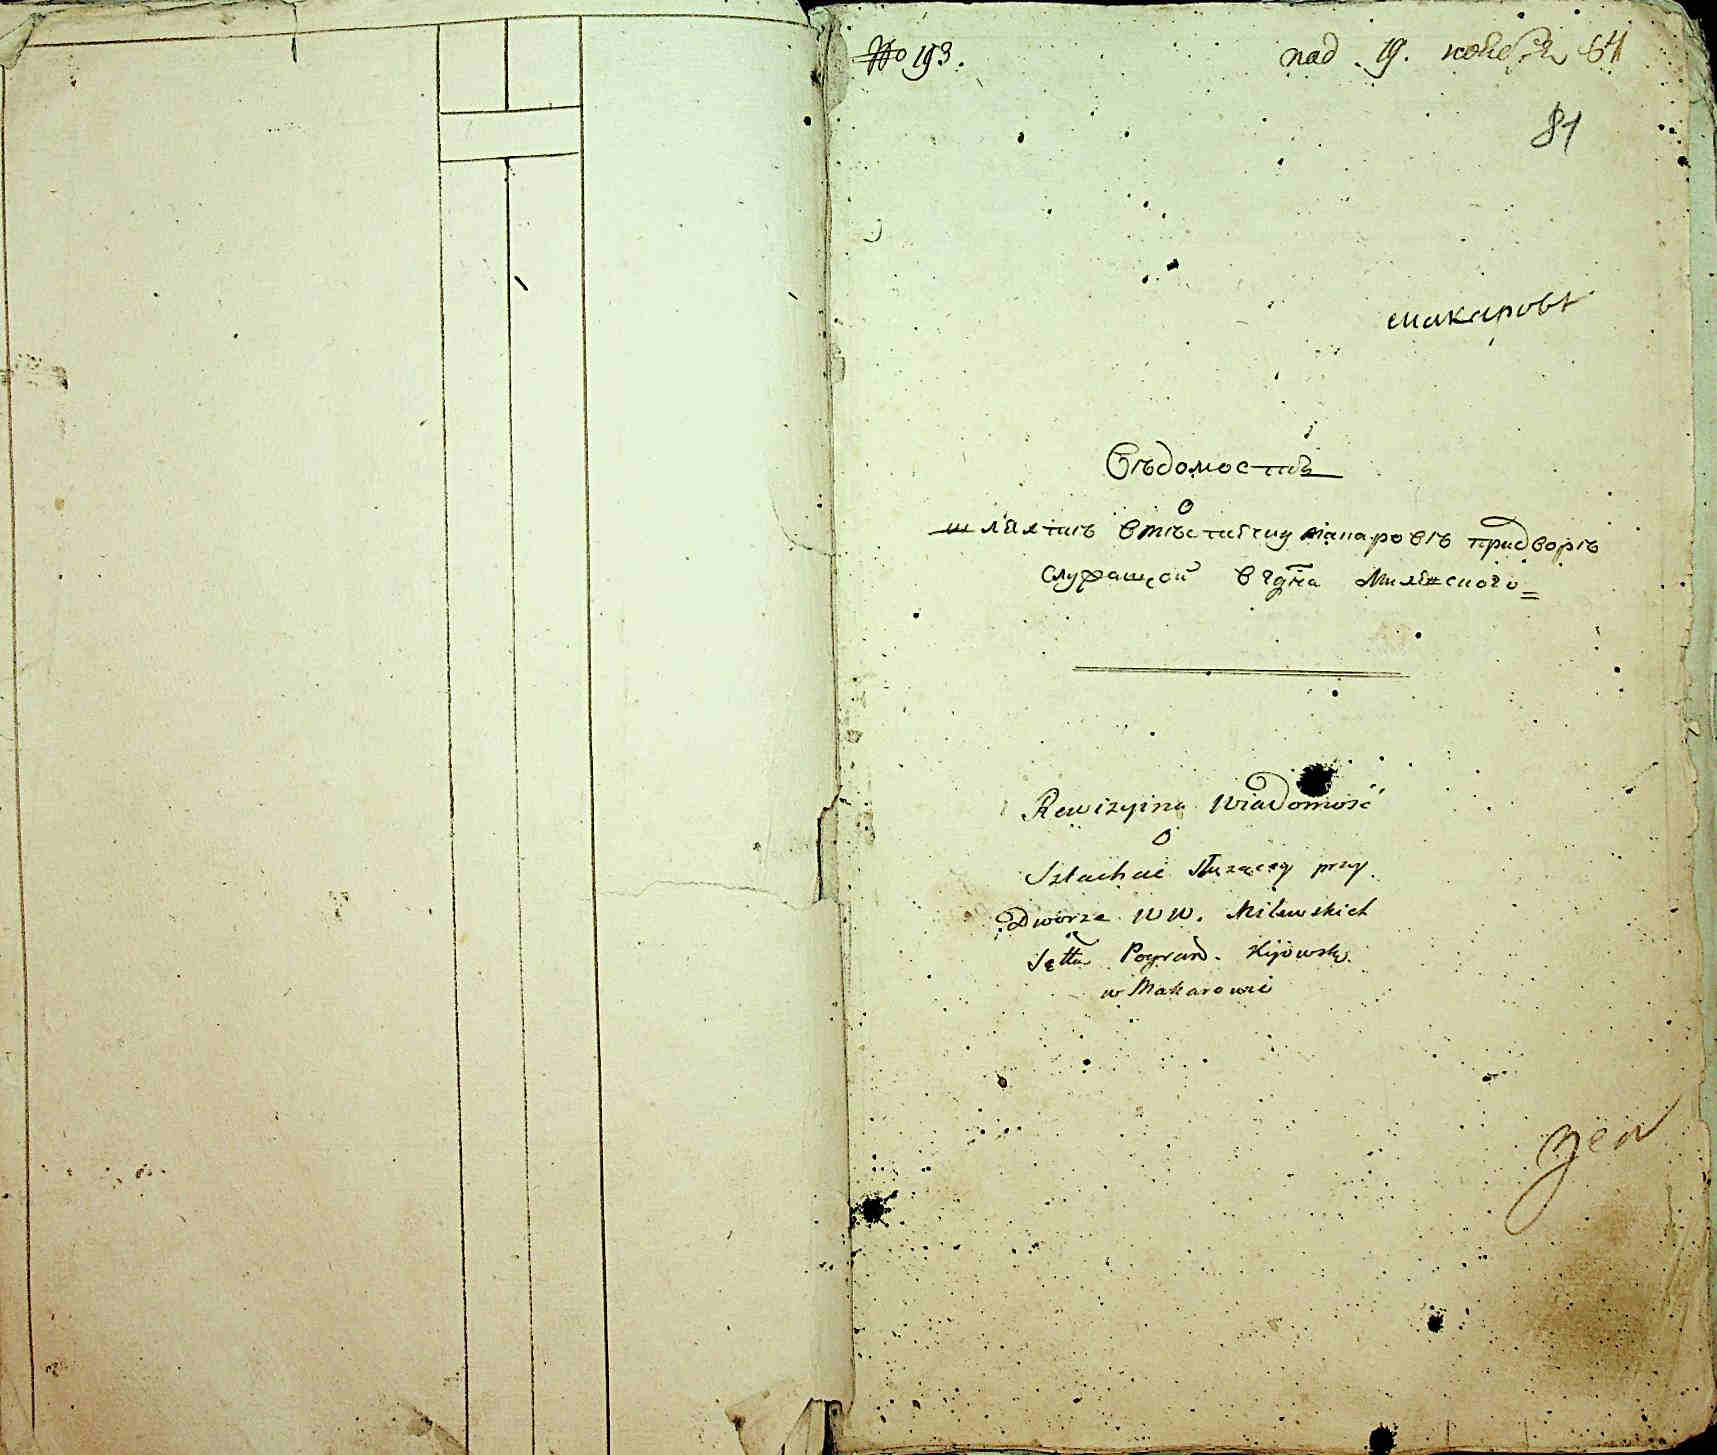 № 193.
под. 19. ноября
81
макаровъ
Вѣдомость
О
шляхтѣ вмѣстечку макаровѣ придворѣ
служащой
Rewizyina Wiadomość
O
Szlachcie służącey przy
Dworze WW. Milewskich
Sętta Pogran. Kijowsk.
w Makarowie